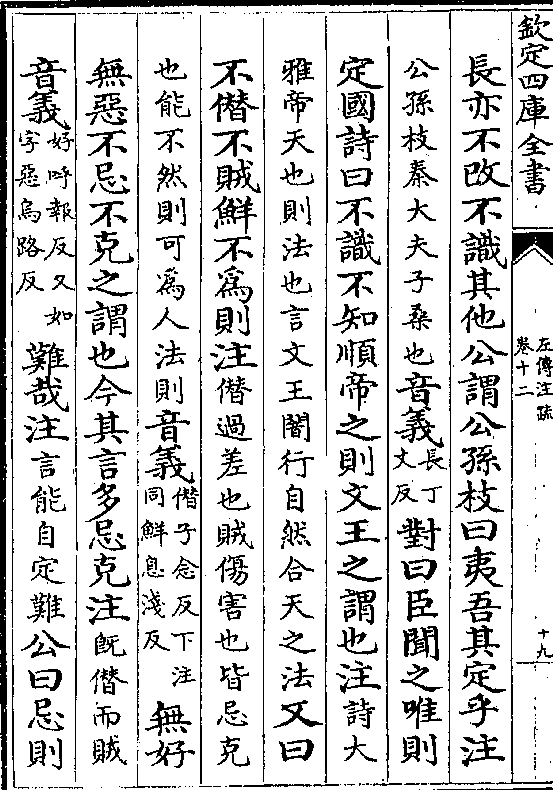 欽定四庫全書
左傳注疏
卷十二
十九
長亦不改不識其他公謂公孫枝曰夷吾其定乎注
公孫枝秦大夫子桑也音義長丁丈反對曰臣聞之唯則
定國詩曰不識不知順帝之則文王之謂也注詩大
雅帝天也則法也言文王闇行自然合天之法又曰
不僭不賊鮮不為則注僭過差也賊傷害也皆忌克
也能不然則可為人法則音義僭子念反下注同鮮息淺反無好
無惡不忌不克之謂也今其言多忌克注既僭而賊
音義好呼報反又如字惡烏路反難哉注言能自定難公曰忌則